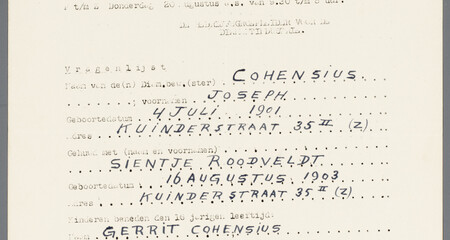 t/m Z Donderdag 20 Augustus a.s. van 9.30 t/m 5 uur.
V r a g e n l i j s t
Naam van de(n) Diam.bew.(ster) COHENSIUS
; voornamen JOSEPH
Geboortedatum 4 JULI 1901
adres KUINDERSTRAAT 35 II (Z)
Gehuwd met (naam en voornamen)
SIENTJE ROODVELDT
Geboortedatum 16 AUGUSTUS 1903
adres KUINDERSTRAAT 35 II (Z)
Kinderen beneden den 16 jarigen leeftijd:
Naam GERRIT COHENSIUS